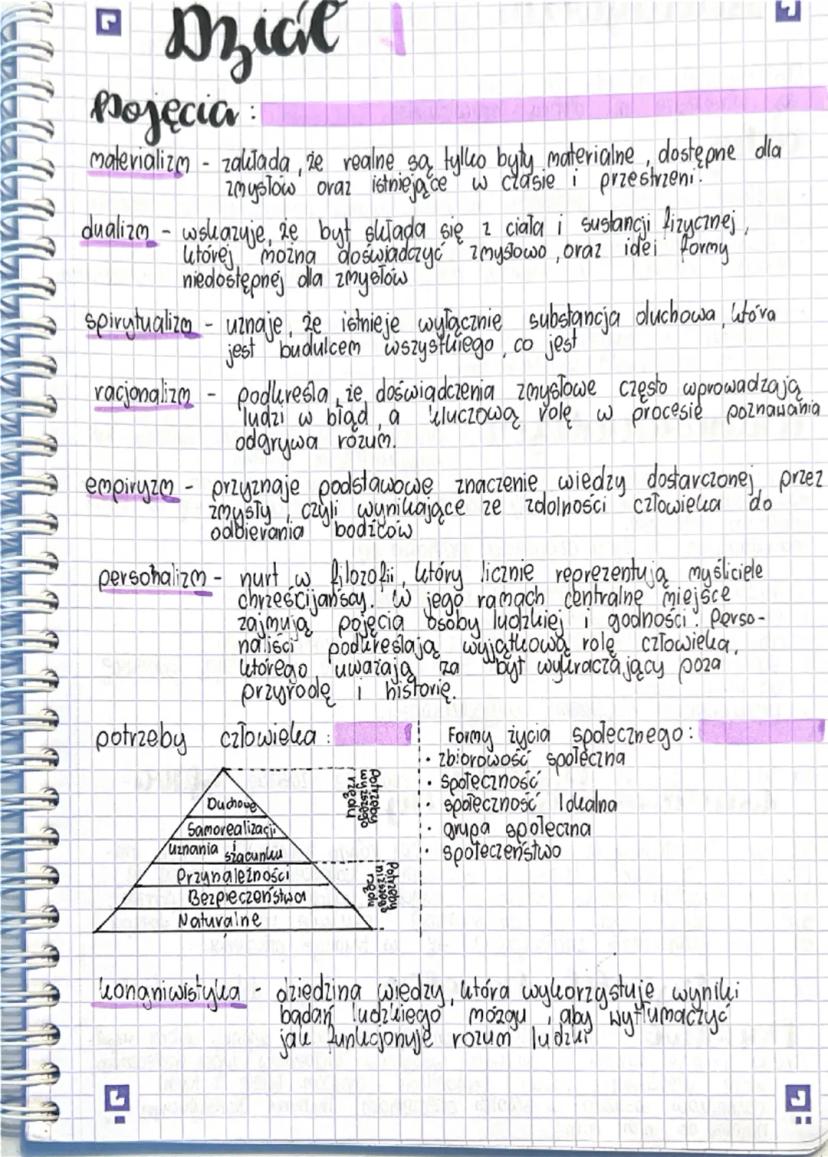 Dział 1
Pojęcia:
materializm - zakłada, że realne są tylko byty materialne, dostępne dla
zmysłów oraz istniejące w czasie i przestrzeni.
dualizm - wskazuje, że byt składa się z ciała i sustancji fizycznej,
której można doświadczyć zmysłowo, oraz idei formy
niedostępnej dla zmysłów
spirytualizm - uznaje, że istnieje wyłącznie substancja duchowa, która
jest budulcem wszystkiego, co jest
racjonalizm - podkreśla, że doświadczenia zmysłowe często wprowadzają
ludzi w błąd, a kluczową rolę w procesie poznawania
odgrywa rozum.
empiryzm - przyznaje podstawowe znaczenie wiedzy dostarczonej przez
zmysły, czyli wynikające ze zdolności człowieka do
odbierania bodźców
personalizm - nurt w filozofii, który licznie reprezentują myśliciele
chrześcijańscy. W jego ramach centralne miejsce
zajmują pojęcia osoby ludzkiej i godności. Perso-
naliści podkreślają wyjątkową rolę człowieka,
którego uważają za byt wykraczający poza
przyrodę i historię.
potrzeby człowieka:
Duchowe
Samorealizacji
Uznania i szacunku
Przynależności
Bezpieczeństwa
Naturalne
Potrzeby wyższego rzędu
Potrzeby niższego rzędu
Formy życia społecznego:
• zbiorowość społeczna
• społeczność
• społeczność lokalna
• grupa społeczna
• społeczeństwo
kongniwistyka - dziedzina wiedzy, która wykorzystuje wyniki
badań ludzkiego mózgu, aby wytłumaczyć
jak funkcjonuje rozum ludzki